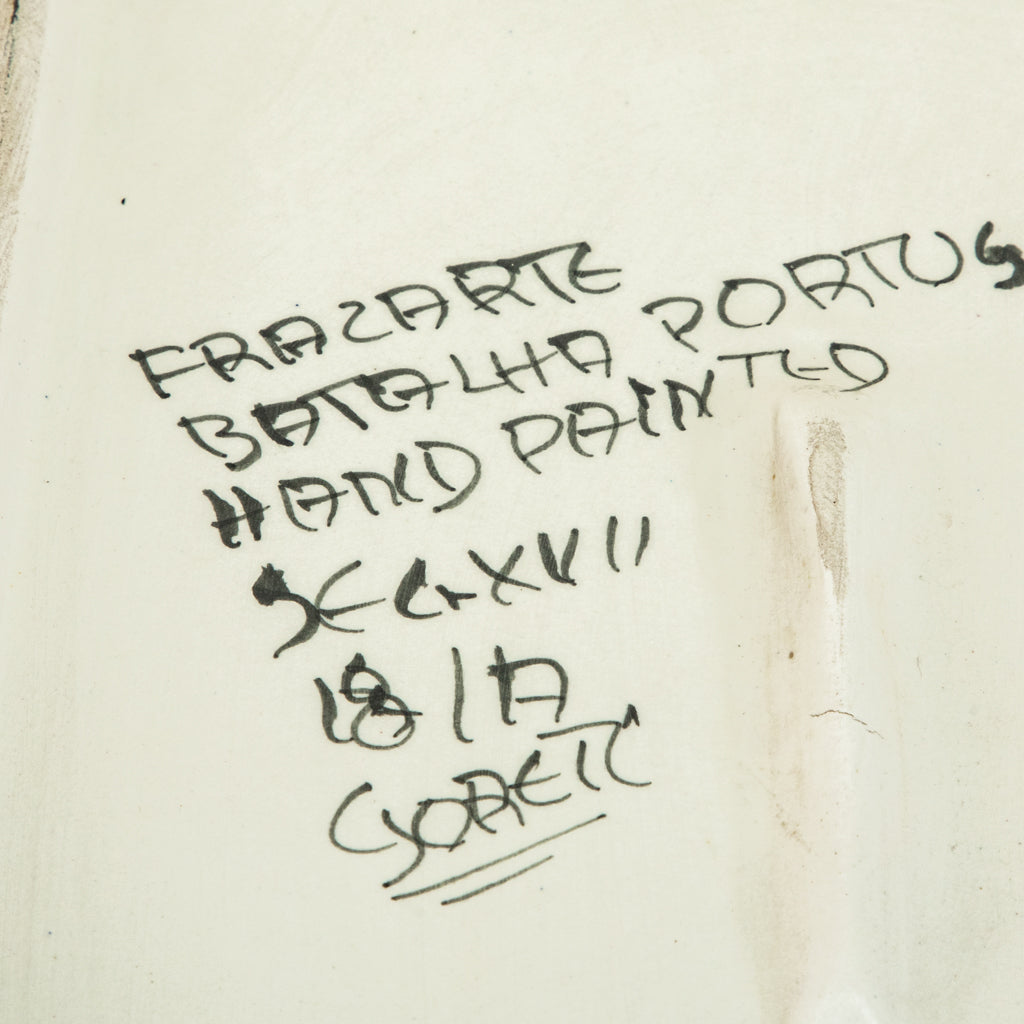 FRAZARTE
BATALHA PORTUG
HAND PAINTED
SEC. XVII
18 / A
GORETI